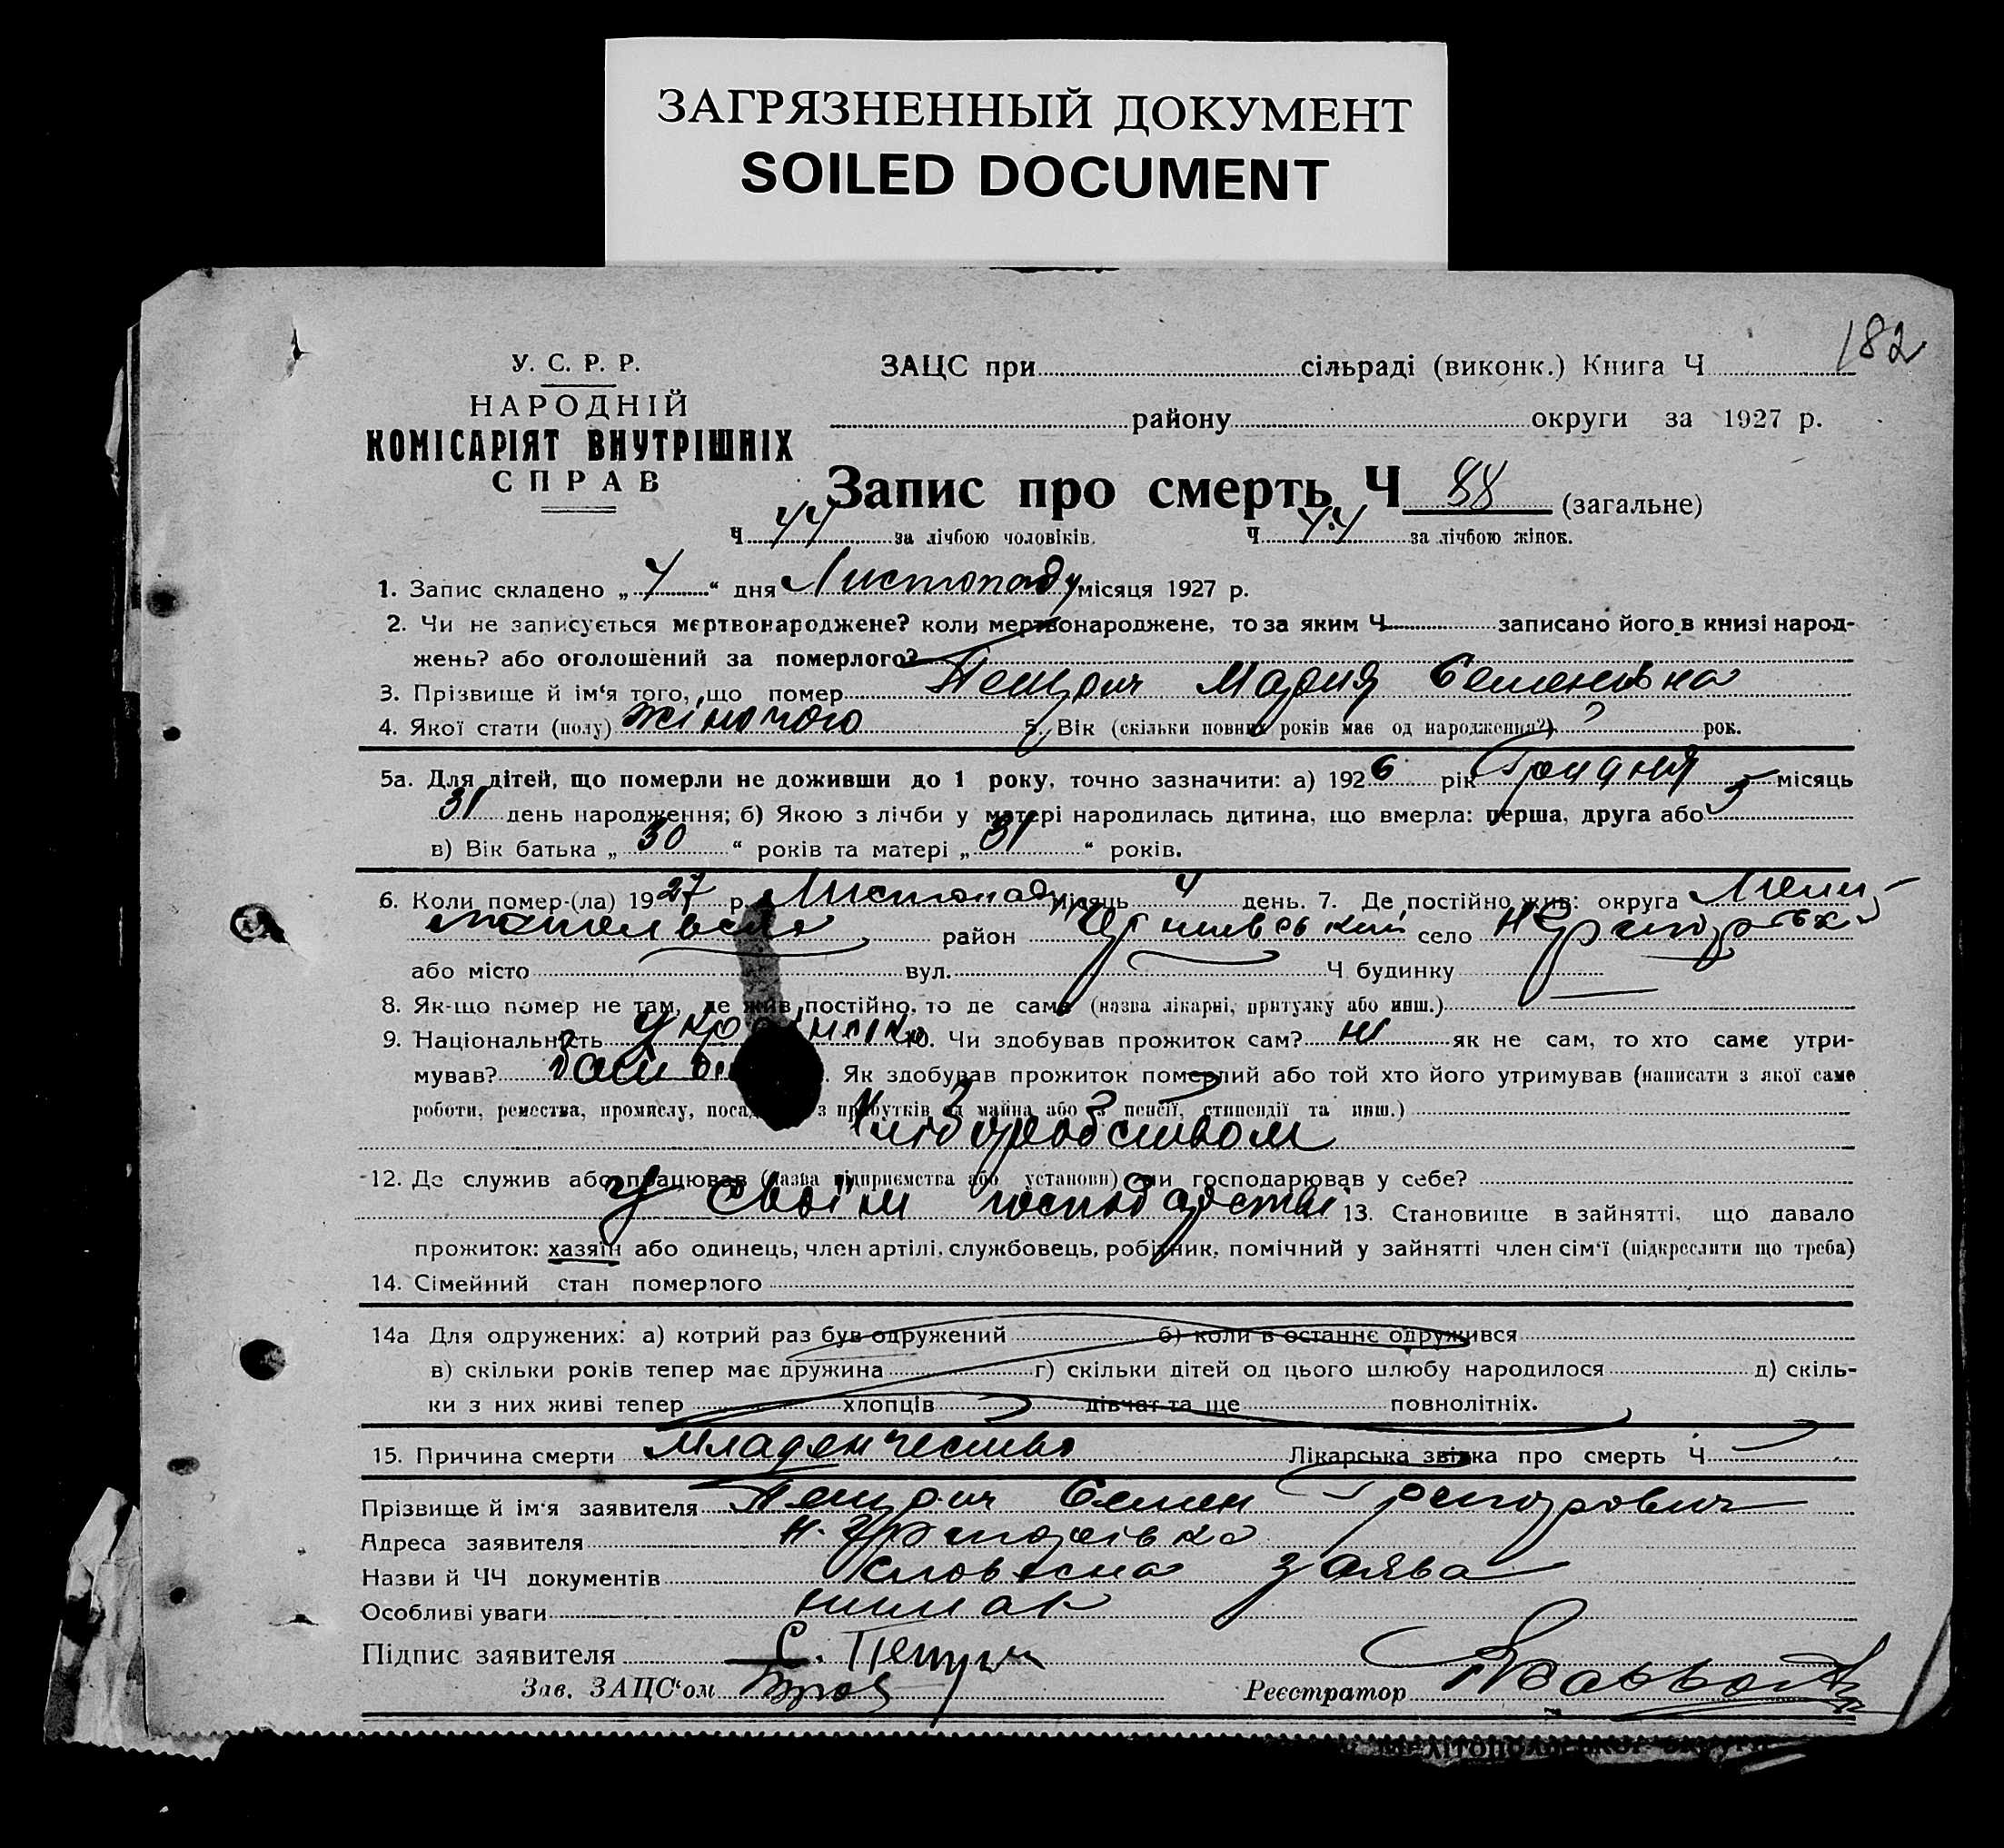 ЗАГРЯЗНЕННЫЙ ДОКУМЕНТ
SOILED DOCUMENT
182
У. С. Р. Р.
НАРОДНІЙ
КОМІСАРІЯТ ВНУТРІШНІХ
СПРАВ
ЗАЦС при сільраді (виконк.) Книга Ч
району округи за 1927 р.
Запис про смерть Ч 88 (загальне)
Ч 44 за лічбою чоловіків. Ч 44 за лічбою жінок.
1. Запис складено „ 4 “ дня Листопаду місяця 1927 р.
2. Чи не записується мертвонароджене? коли мертвонароджене, то за яким Ч записано його в книзі народ-
жень? або оголошений за померлого?
3. Прізвище й ім‘я того, що помер Мария Семенівна
4. Якої стати (полу) жіночого 5. Вік (скільки повних років має од народження?) рок.
5а. Для дітей, що померли не доживши до 1 року, точно зазначити: а) 1926 рік Грудня місяць
31 день народження; б) Якою з лічби у матері народилась дитина, що вмерла: перша, друга або 3
в) Вік батька „ 30 “ років та матері „ 31 “ років.
6. Коли помер-(ла) 1927 р. Листопаду місяць 4 день. 7. Де постійно жив: округа Мели-
топільська район село
або місто вул. Ч будинку
8. Як-що помер не там, де жив постійно, то де саме (назва лікарні, притулку або инш.)
9. Національність 10. Чи здобував прожиток сам? ні як не сам, то хто саме утри-
мував? . Як здобував прожиток померлий або той хто його утримував (написати з якої саме
роботи, ремества, промислу, з прибутків од майна або з пенсії, стипендії та инш.)
Хліборобством
12. Де служив або працював (назва підприємства або установи) чи господарював у себе?
У своїм господарстві 13. Становище в зайнятті, що давало
прожиток: хазяїн або одинець, член артілі, службовець, робітник, помічний у зайнятті член сім‘ї (підкреслити що треба)
14. Сімейний стан померлого
14а Для одружених: а) котрий раз був одружений б) коли в останнє одружився
в) скільки років тепер має дружина г) скільки дітей од цього шлюбу народилося д) скіль-
ки з них живі тепер хлопців дівчат та ще повнолітніх.
15. Причина смерти младенчество Лікарська звістка про смерть Ч
Прізвище й ім‘я заявителя Семен Григорович
Адреса заявителя Н. Григорівка
Назви й ЧЧ документів словесна заява
Особливі уваги нимає
Підпис заявителя С.
Зав. ЗАЦС‘ом Реєстратор